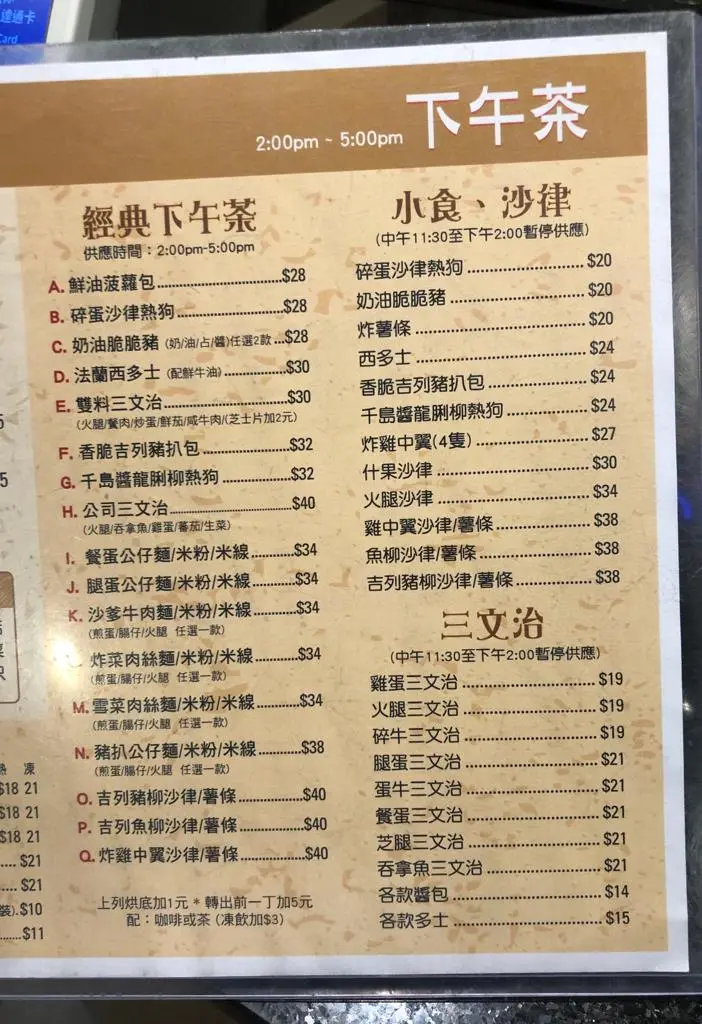 達通卡
Card
下午茶
2:00pm ~ 5:00pm
經典下午茶
供應時間：2:00pm-5:00pm
A. 鮮油菠蘿包 $28
B. 碎蛋沙律熱狗 $28
C. 奶油脆脆豬 (奶/油/占/醬)任選2款 $28
D. 法蘭西多士 (配鮮牛油) $30
E. 雙料三文治 $30
(火腿/餐肉/炒蛋/鮮茄/咸牛肉/(芝士片加2元)
F. 香脆吉列豬扒包 $32
G. 千島醬龍脷柳熱狗 $32
H. 公司三文治 $40
(火腿/吞拿魚/雞蛋/蕃茄/生菜)
I. 餐蛋公仔麵/米粉/米線 $34
J. 腿蛋公仔麵/米粉/米線 $34
K. 沙爹牛肉麵/米粉/米線 $34
(煎蛋/腸仔/火腿 任選一款)
炸菜肉絲麵/米粉/米線 $34
(煎蛋/腸仔/火腿 任選一款)
M. 雪菜肉絲麵/米粉/米線 $34
(煎蛋/腸仔/火腿 任選一款)
N. 豬扒公仔麵/米粉/米線 $38
(煎蛋/腸仔/火腿 任選一款)
O. 吉列豬柳沙律/薯條 $40
P. 吉列魚柳沙律/薯條 $40
Q. 炸雞中翼沙律/薯條 $40
上列烘底加1元 * 轉出前一丁加5元
配：咖啡或茶 (凍飲加$3)
小食、沙律
(中午11:30至下午2:00暫停供應)
碎蛋沙律熱狗 $20
奶油脆脆豬 $20
炸薯條 $20
西多士 $24
香脆吉列豬扒包 $24
千島醬龍脷柳熱狗 $24
炸雞中翼(4隻) $27
什果沙律 $30
火腿沙律 $34
雞中翼沙律/薯條 $38
魚柳沙律/薯條 $38
吉列豬柳沙律/薯條 $38
三文治
(中午11:30至下午2:00暫停供應)
雞蛋三文治 $19
火腿三文治 $19
碎牛三文治 $19
腿蛋三文治 $21
蛋牛三文治 $21
餐蛋三文治 $21
芝腿三文治 $21
吞拿魚三文治 $21
各款醬包 $14
各款多士 $15
熱 凍
$18 21
$18 21
$18 21
$21
$21
裝) $10
$11